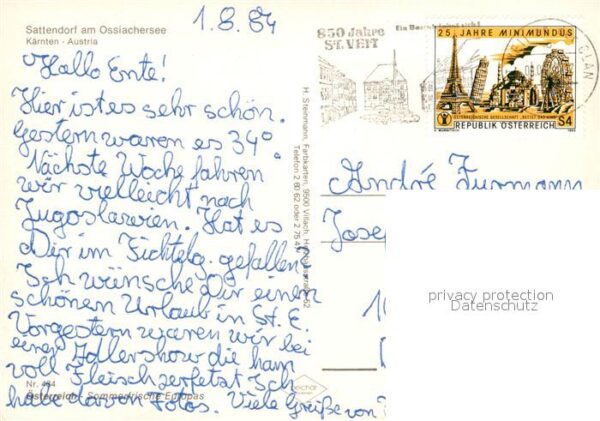 Sattendorf am Ossiachersee
Kärnten - Austria
1.8.84
Hallo Ente!
Hier ist es sehr schön.
Gestern waren es 34°
Nächste Woche fahren
wir vielleicht nach
Jugoslawien. Hat es
Dir im Fichtelg. gefallen?
Ich wünsche Dir einen
schönen Urlaub in St. E.
Vorgestern waren wir bei
einer Adlershow die ham
voll Fleisch zerfetzt Ich
habe davon Fotos. Viele Grüße von
Nr. 484
Österreich - Sommerfrische Europas
H. Steinmann, Farbkarten, 9500 Villach,
Telefon 2 80 62 oder 2 75
850 Jahre
ST. VEIT
Ein Besuch lohnt sich!
GLAN
25 JAHRE MINIMUNDUS
ÖSTERREICHISCHE GESELLSCHAFT „RETTET DAS KIND“
REPUBLIK ÖSTERREICH
S4
André Furmann
Jose
privacy protection
Datenschutz